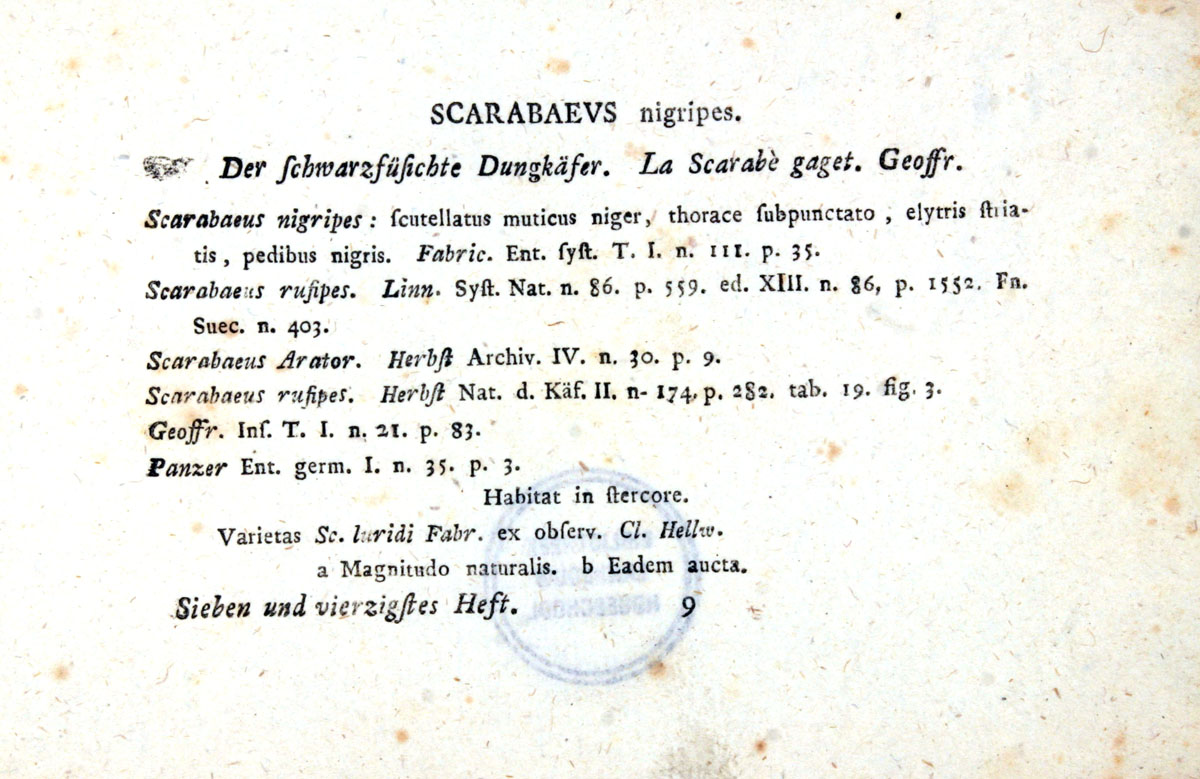 SCARABAEVS nigripes.
Der ſchwarzfüſichte Dungkäfer. La Scarabè gaget. Geoffr.
Scarabaeus nigripes: ſcutellatus muticus niger, thorace ſubpunctato, elytris ſtria-
tis, pedibus nigris. Fabric. Ent. ſyſt. T. I. n. 111. p. 35.
Scarabaeus rufipes. Linn. Syſt. Nat. n. 86. p. 559. ed. XIII. n. 86, p. 1552. Fn.
Suec. n. 403.
Scarabaeus Arator. Herbſt Archiv. IV. n. 30. p. 9.
Scarabaeus rufipes. Herbſt Nat. d. Käf. II. n- 174, p. 282. tab. 19. fig. 3.
Geoffr. Inſ. T. I. n. 21. p. 83.
Panzer Ent. germ. I. n. 35. p. 3.
Habitat in ſtercore.
Varietas Sc. luridi Fabr. ex obſerv. Cl. Hellw.
a Magnitudo naturalis. b Eadem aucta.
Sieben und vierzigſtes Heft. 9